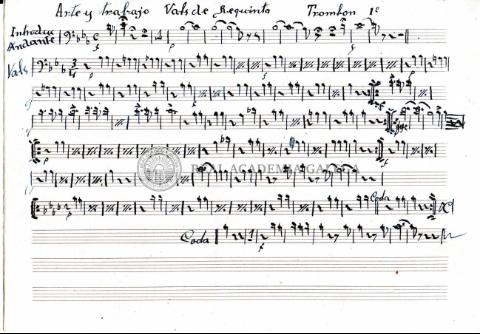 Arte y trabajo Vals de Requinto Trombon 1º
Introduc
Andante
Vals
REAL ACADEMIA GALEGA
Coda
Coda